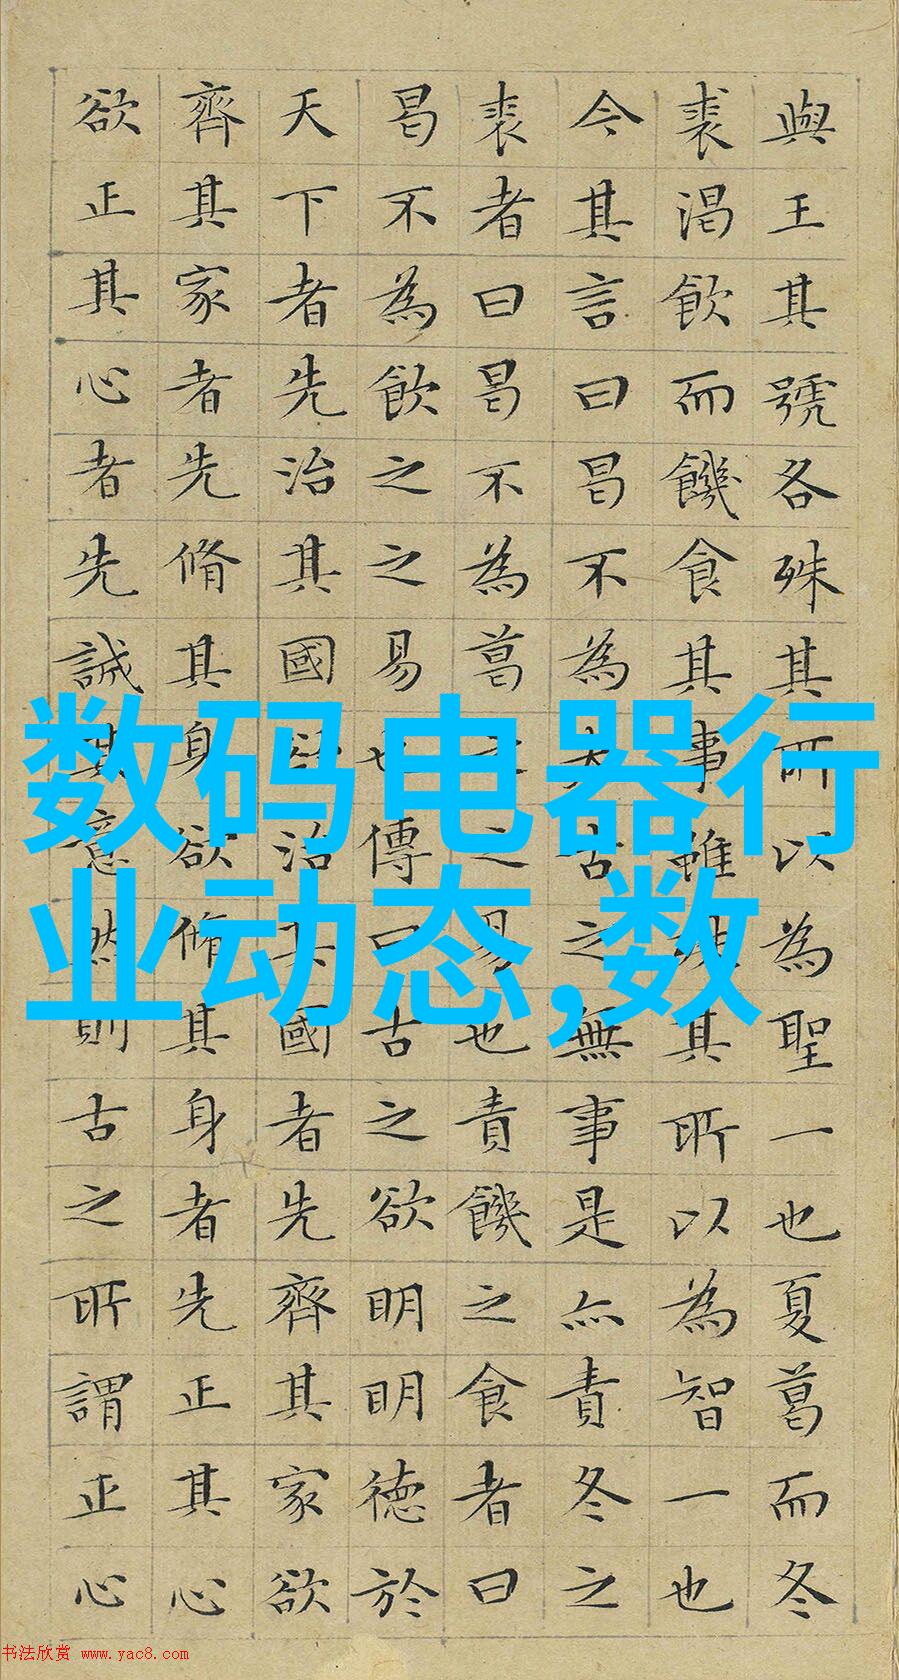 與王其號各殊其所以為聖一也夏葛而冬
裘渴飲而饑食其事雖殊其所以為智一也
今其言曰曷不為太古之無事是亦責冬之
裘者曰曷不為葛之之易也責饑之食者曰
曷不為飲之之易也傳曰古之欲明明德於
天下者先治其國欲治其國者先齊其家欲
齊其家者先脩其身欲脩其身者先正其心
欲正其心者先誠其意然則古之所謂正心
数码电器行
业动态,数
书法欣赏 www.yac8.com